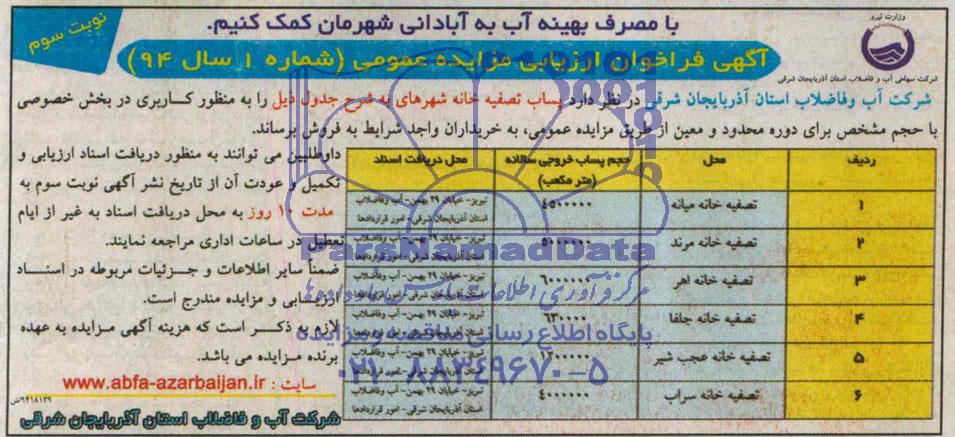 وزارت نیرو
شرکت سهامی آب و فاضلاب استان آذربایجان شرقی
نوبت سوم
با مصرف بهینه آب به آبادانی شهرمان کمک کنیم.
آگهی فراخوان ارزیابی مزایده عمومی (شماره ۱ سال ۹۴)
شرکت آب وفاضلاب استان آذربایجان شرقی در نظر دارد پساب تصفیه خانه شهرهای به شرح جدول ذیل را به منظور کاربری در بخش خصوصی
با حجم مشخص برای دوره محدود و معین از طریق مزایده عمومی، به خریداران واجد شرایط به فروش برساند.
ردیف محل حجم پساب خروجی سالانه (متر مکعب) محل دریافت اسناد
۱ تصفیه خانه میانه ۴۵۰۰۰۰۰ تبریز- خیابان ۲۹ بهمن- آب وفاضلاب استان آذربایجان شرقی- امور قراردادها
۲ تصفیه خانه مرند ۵۰۰۰۰۰۰ تبریز- خیابان ۲۹ بهمن- آب وفاضلاب استان آذربایجان شرقی- امور قراردادها
۳ تصفیه خانه اهر ۶۰۰۰۰۰۰ تبریز- خیابان ۲۹ بهمن- آب وفاضلاب استان آذربایجان شرقی- امور قراردادها
۴ تصفیه خانه جلفا ۶۳۰۰۰۰ تبریز- خیابان ۲۹ بهمن- آب وفاضلاب استان آذربایجان شرقی- امور قراردادها
۵ تصفیه خانه عجب شیر ۱۲۰۰۰۰۰ تبریز- خیابان ۲۹ بهمن- آب وفاضلاب استان آذربایجان شرقی- امور قراردادها
۶ تصفیه خانه سراب ۴۰۰۰۰۰۰ تبریز- خیابان ۲۹ بهمن- آب وفاضلاب استان آذربایجان شرقی- امور قراردادها
داوطلبین می توانند به منظور دریافت اسناد ارزیابی و
تکمیل و عودت آن از تاریخ نشر آگهی نوبت سوم به
مدت ۱۰ روز به محل دریافت اسناد به غیر از ایام
تعطیل در ساعات اداری مراجعه نمایند.
ضمناً سایر اطلاعات و جزئیات مربوطه در اسناد
ارزیابی و مزایده مندرج است.
لازم به ذکر است که هزینه آگهی مزایده به عهده
برنده مزایده می باشد.
سایت : www.abfa-azarbaijan.ir
۹۴۱۸۱۳۹/ش
شرکت آب و فاضلاب استان آذربایجان شرقی
ParsNamadData
پایگاه اطلاع رسانی مناقصه و مزایده
۰۲۱-۸۸۳۴۹۶۷۰-۵